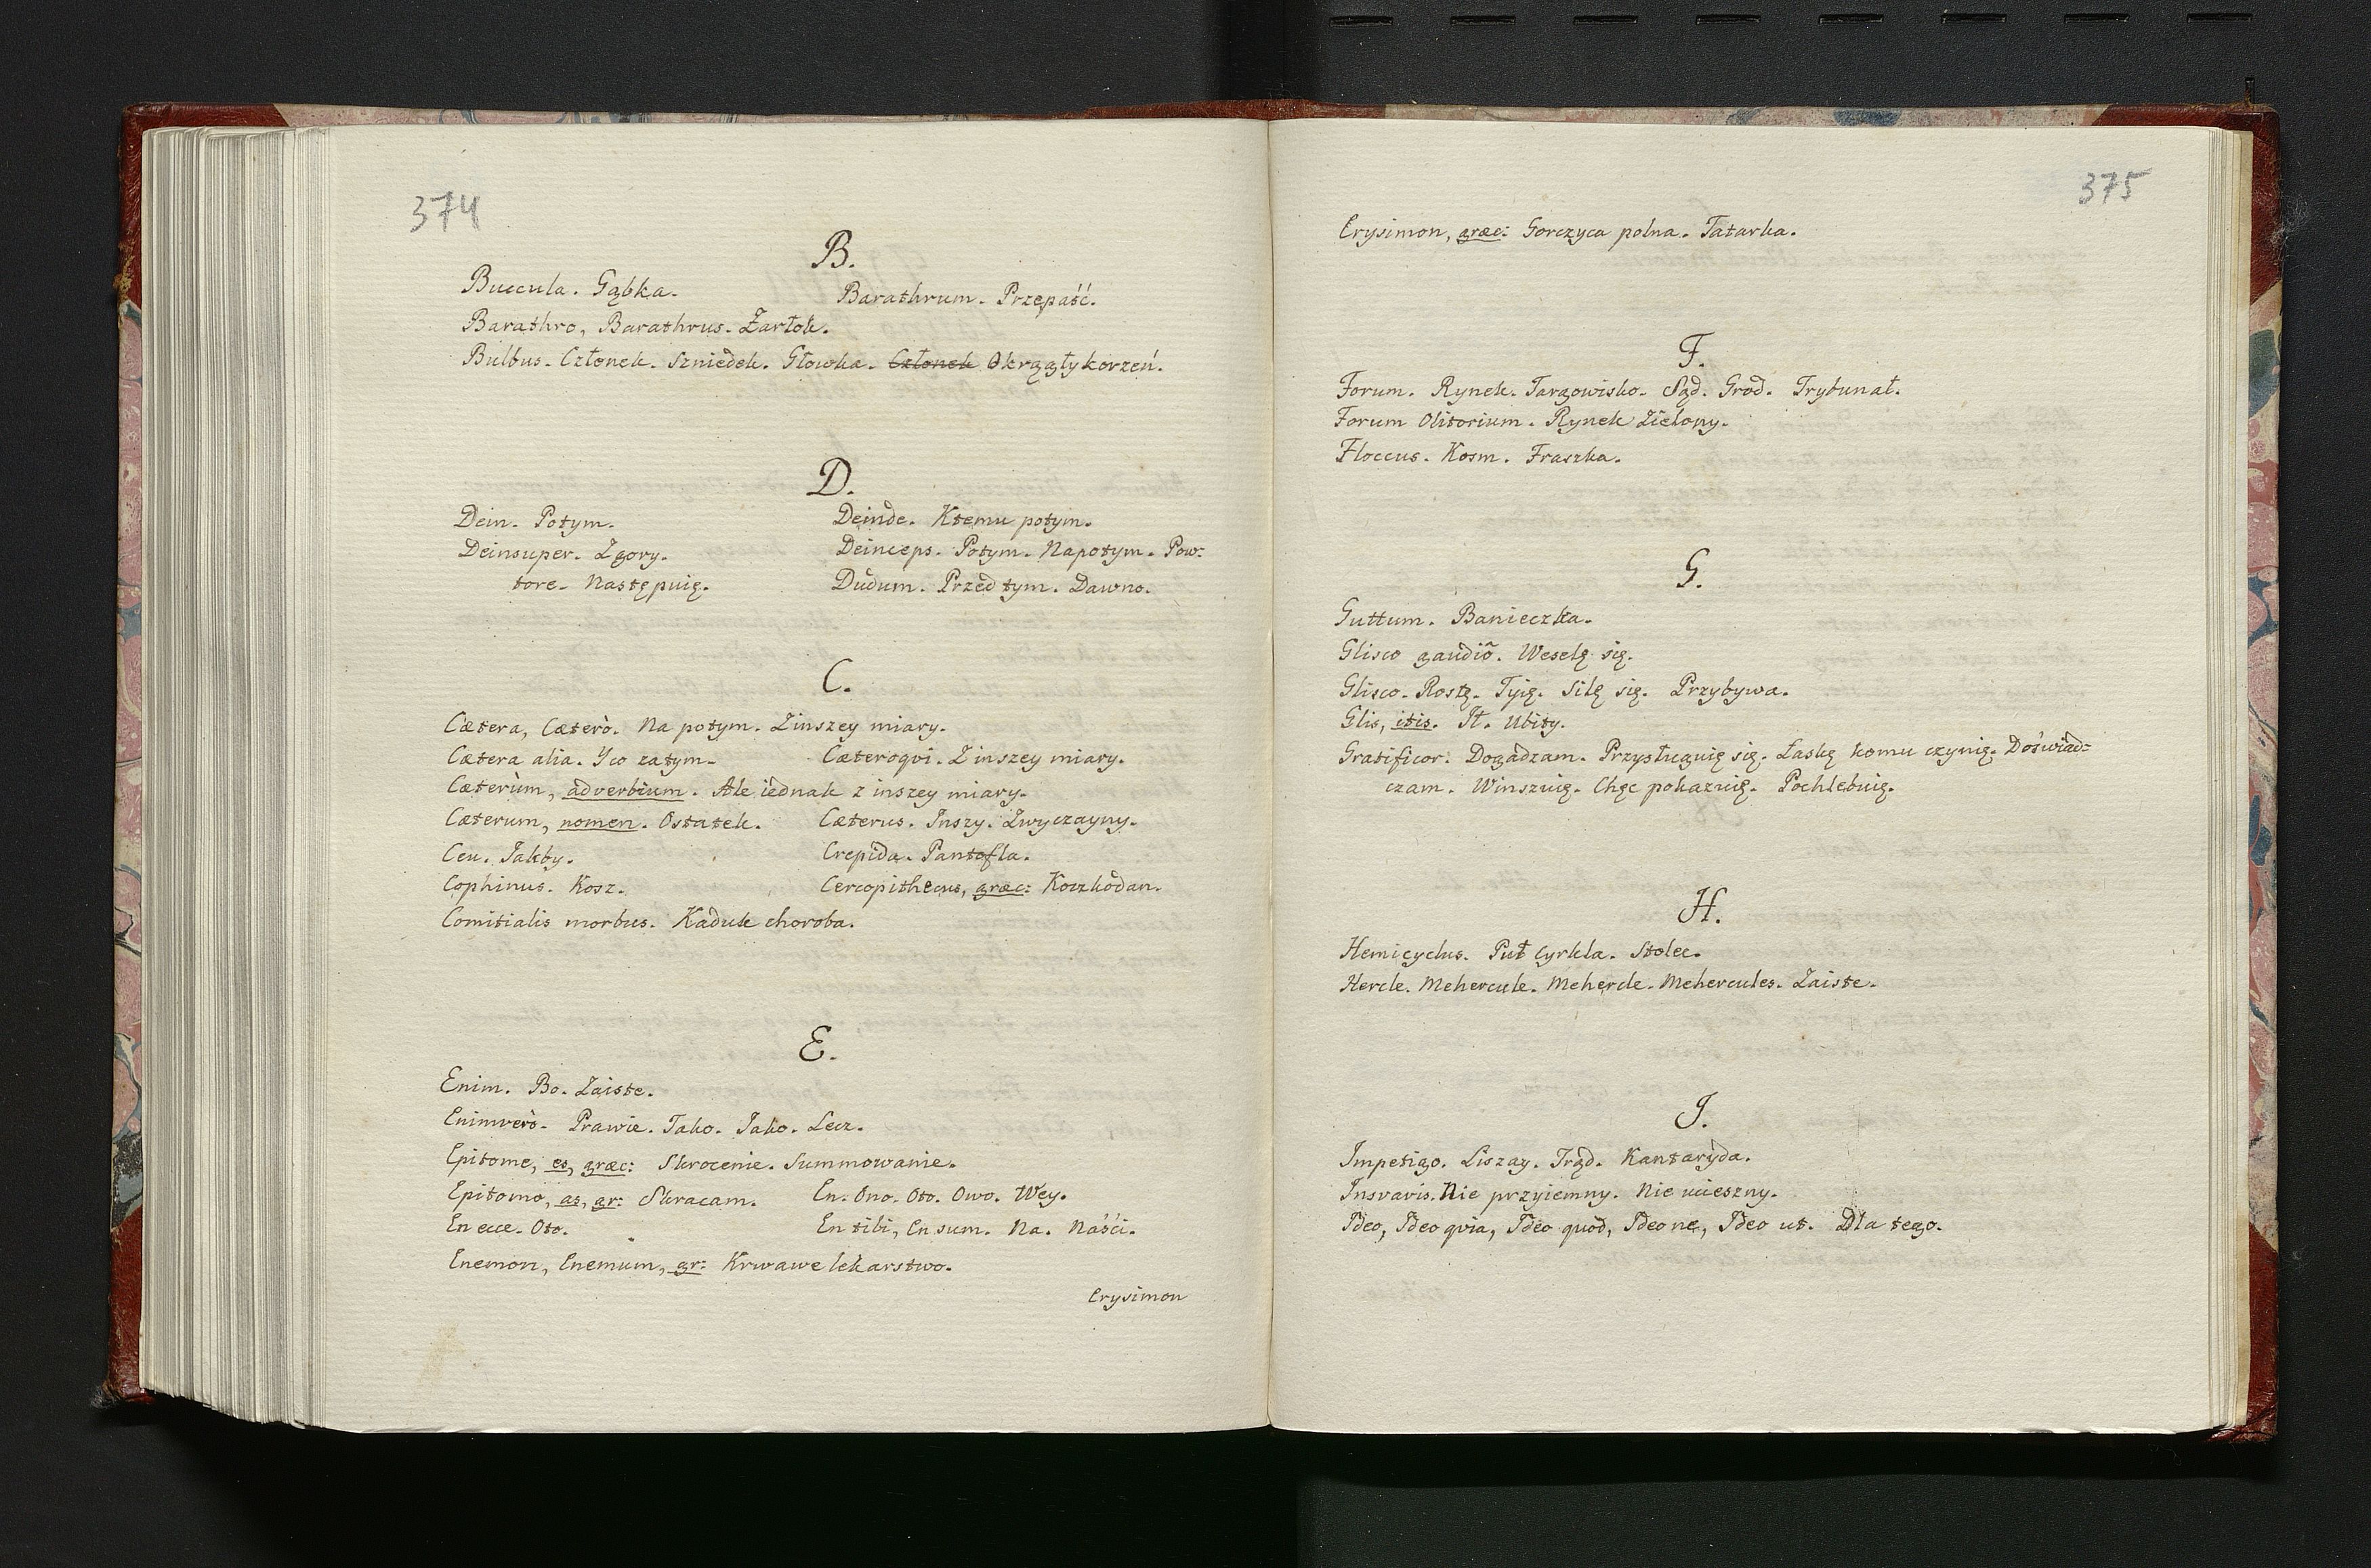 374
B.
Buccula. Gąbka. Barathrum. Przepaść.
Barathro, Barathrus. Żarłok.
Bulbus. Członek. Szniedek. Głowka. Członek Okrągły korzeń.
D.
Dein. Potym. Deinde. Ktemu potym.
Deinsuper. Zgory. Deinceps. Potym. Napotym. Pow:
tore. Następuię. Dudum. Przed tym. Dawno.
C.
Cætera, Cæterò. Na potym. Zinszey miary.
Cætera alia. Y co zatym. Cæteroqvi. Z inszey miary.
Cæterùm, adverbium. Ale iednak z inszey miary.
Cæterum, nomen. Ostatek. Cæterus. Inszy. Zwyczayny.
Ceu. Jakby. Crepida. Pantofla.
Cophinus. Kosz. Cercopithecus, græc: Koczkodan.
Comitialis morbus. Kaduk choroba.
E.
Enim. Bo. Zaiste.
Enimverò. Prawie. Tako. Jako. Lecz.
Epitome, es, græc: Skrocenie. Summowanie.
Epitomo, as, gr: Skracam. En. Ono. Oto. Owo. Wey.
En ecce. Oto. En tibi, En sum. Na. Naści.
Enemon, Enemum, gr: Krwawe lekarstwo.
Erysimon
375
Erysimon, græc: Gorczyca polna. Tatarka.
F.
Forum. Rynek. Targowisko. Sąd. Grod. Trybunał.
Forum Olitorium. Rynek Zielony.
Floccus. Kosm. Fraszka.
G.
Guttum. Banieczka.
Glisco gaudiõ. Weselę się.
Glisco. Rostę. Tyię. Silę się. Przybywa.
Glis, itis. Ił. Ubity.
Gratificor. Dogadzam. Przysługuię się. Łaskę komu czynię. Doświad:
czam. Winszuię. Chęc pokazuię. Pochlebuię.
H.
Hemicyclus. Puł cyrkla. Stolec.
Hercle. Mehercule. Mehercle. Mehercules. Zaiste.
I.
Impetigo. Liszay. Trąd. Kantaryda.
Insvavis. Nie przyiemny. Nie ucieszny.
Ideo, Ideo qvia, Ideo quod, Ideo ne, Ideo ut. Dla tego.